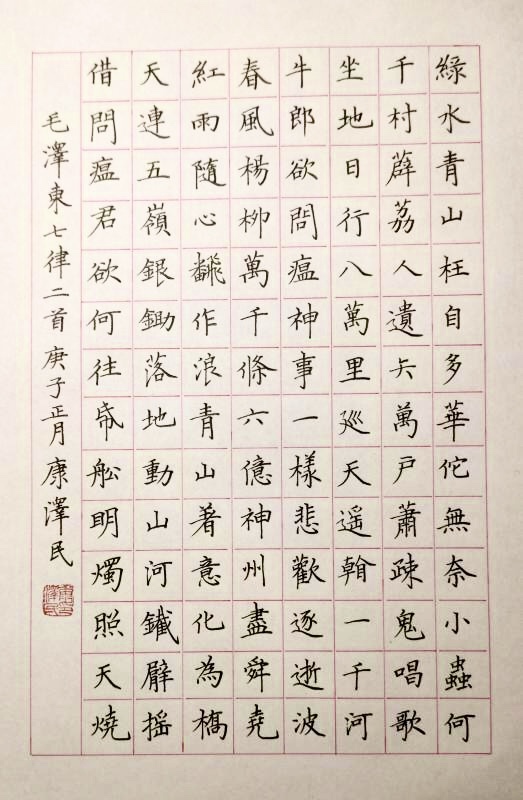 綠水青山枉自多華佗無奈小蟲何
千村薜荔人遺矢萬戶蕭疎鬼唱歌
坐地日行八萬里廵天遥看一千河
牛郎欲問瘟神事一樣悲歡逐逝波
春風楊柳萬千條六億神州盡舜堯
紅雨隨心飜作浪青山著意化為橋
天連五嶺銀鋤落地動山河鐵臂摇
借問瘟君欲何往帋船明燭照天燒
毛澤東七律二首 庚子正月 康澤民